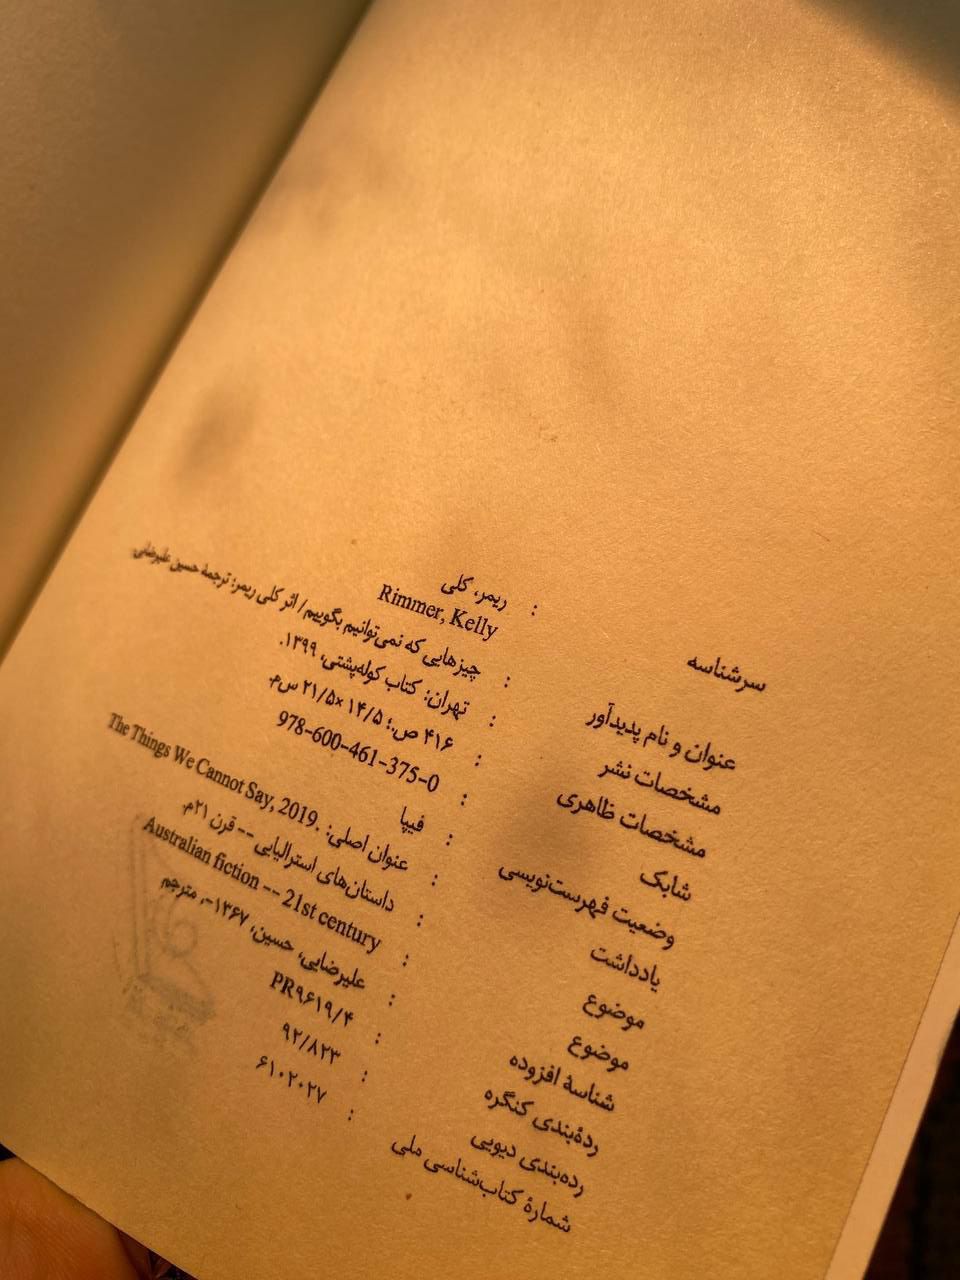 سرشناسه : ریمر، کلی
Rimmer, Kelly
عنوان و نام پدیدآور : چیزهایی که نمی‌توانیم بگوییم/ اثر کلی ریمر؛ ترجمهٔ حسین علیرضایی.
مشخصات نشر : تهران: کتاب کوله‌پشتی، ۱۳۹۹.
مشخصات ظاهری : ۴۱۶ ص.؛ ۱۴/۵ ×۲۱/۵ س‌م.
شابک : 978-600-461-375-0
وضعیت فهرست‌نویسی : فیپا
یادداشت : عنوان اصلی: The Things We Cannot Say, 2019.
موضوع : داستان‌های استرالیایی -- قرن ۲۱م.
موضوع : Australian fiction -- 21st century
شناسهٔ افزوده : علیرضایی، حسین، ۱۳۶۷-، مترجم
رده‌بندی کنگره : PR۹۶۱۹/۴
رده‌بندی دیویی : ۹۲/۸۲۳
شمارهٔ کتاب‌شناسی ملی : ۶۱۰۲۰۲۷